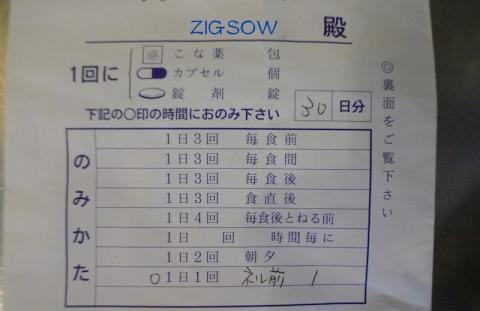 ZIGSOW 殿
1回に
こな薬 包
カプセル 個
錠剤 錠
下記の○印の時間におのみ下さい 30 日分
◎裏面をご覧下さい
のみかた
1日3回 毎食前
1日3回 毎食間
1日3回 毎食後
1日3回 食直後
1日4回 毎食後とねる前
1日 回 時間毎に
1日2回 朝夕
○1日1回 ネル前 1